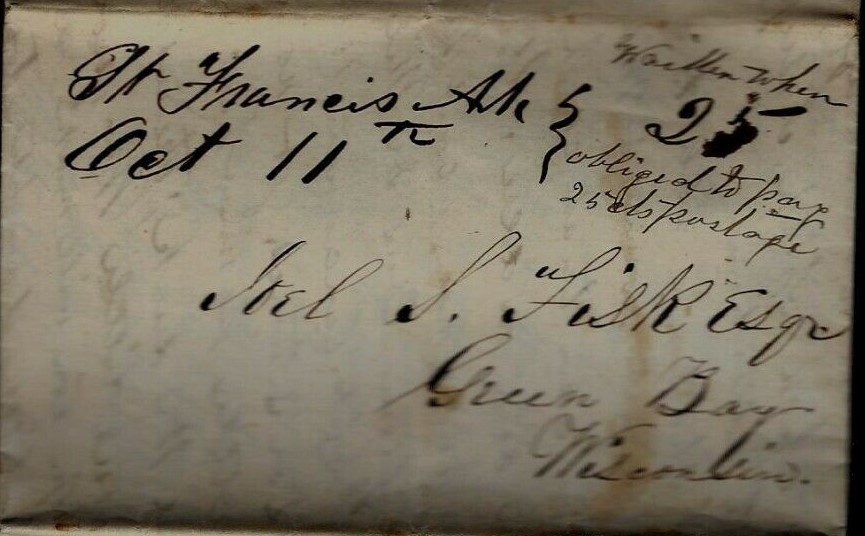 St Francis Ark
Oct 11th
25
Written when
obliged to pay
25cts postage
Joel S. Fisk Esqr
Green Bay
Wisconsin.